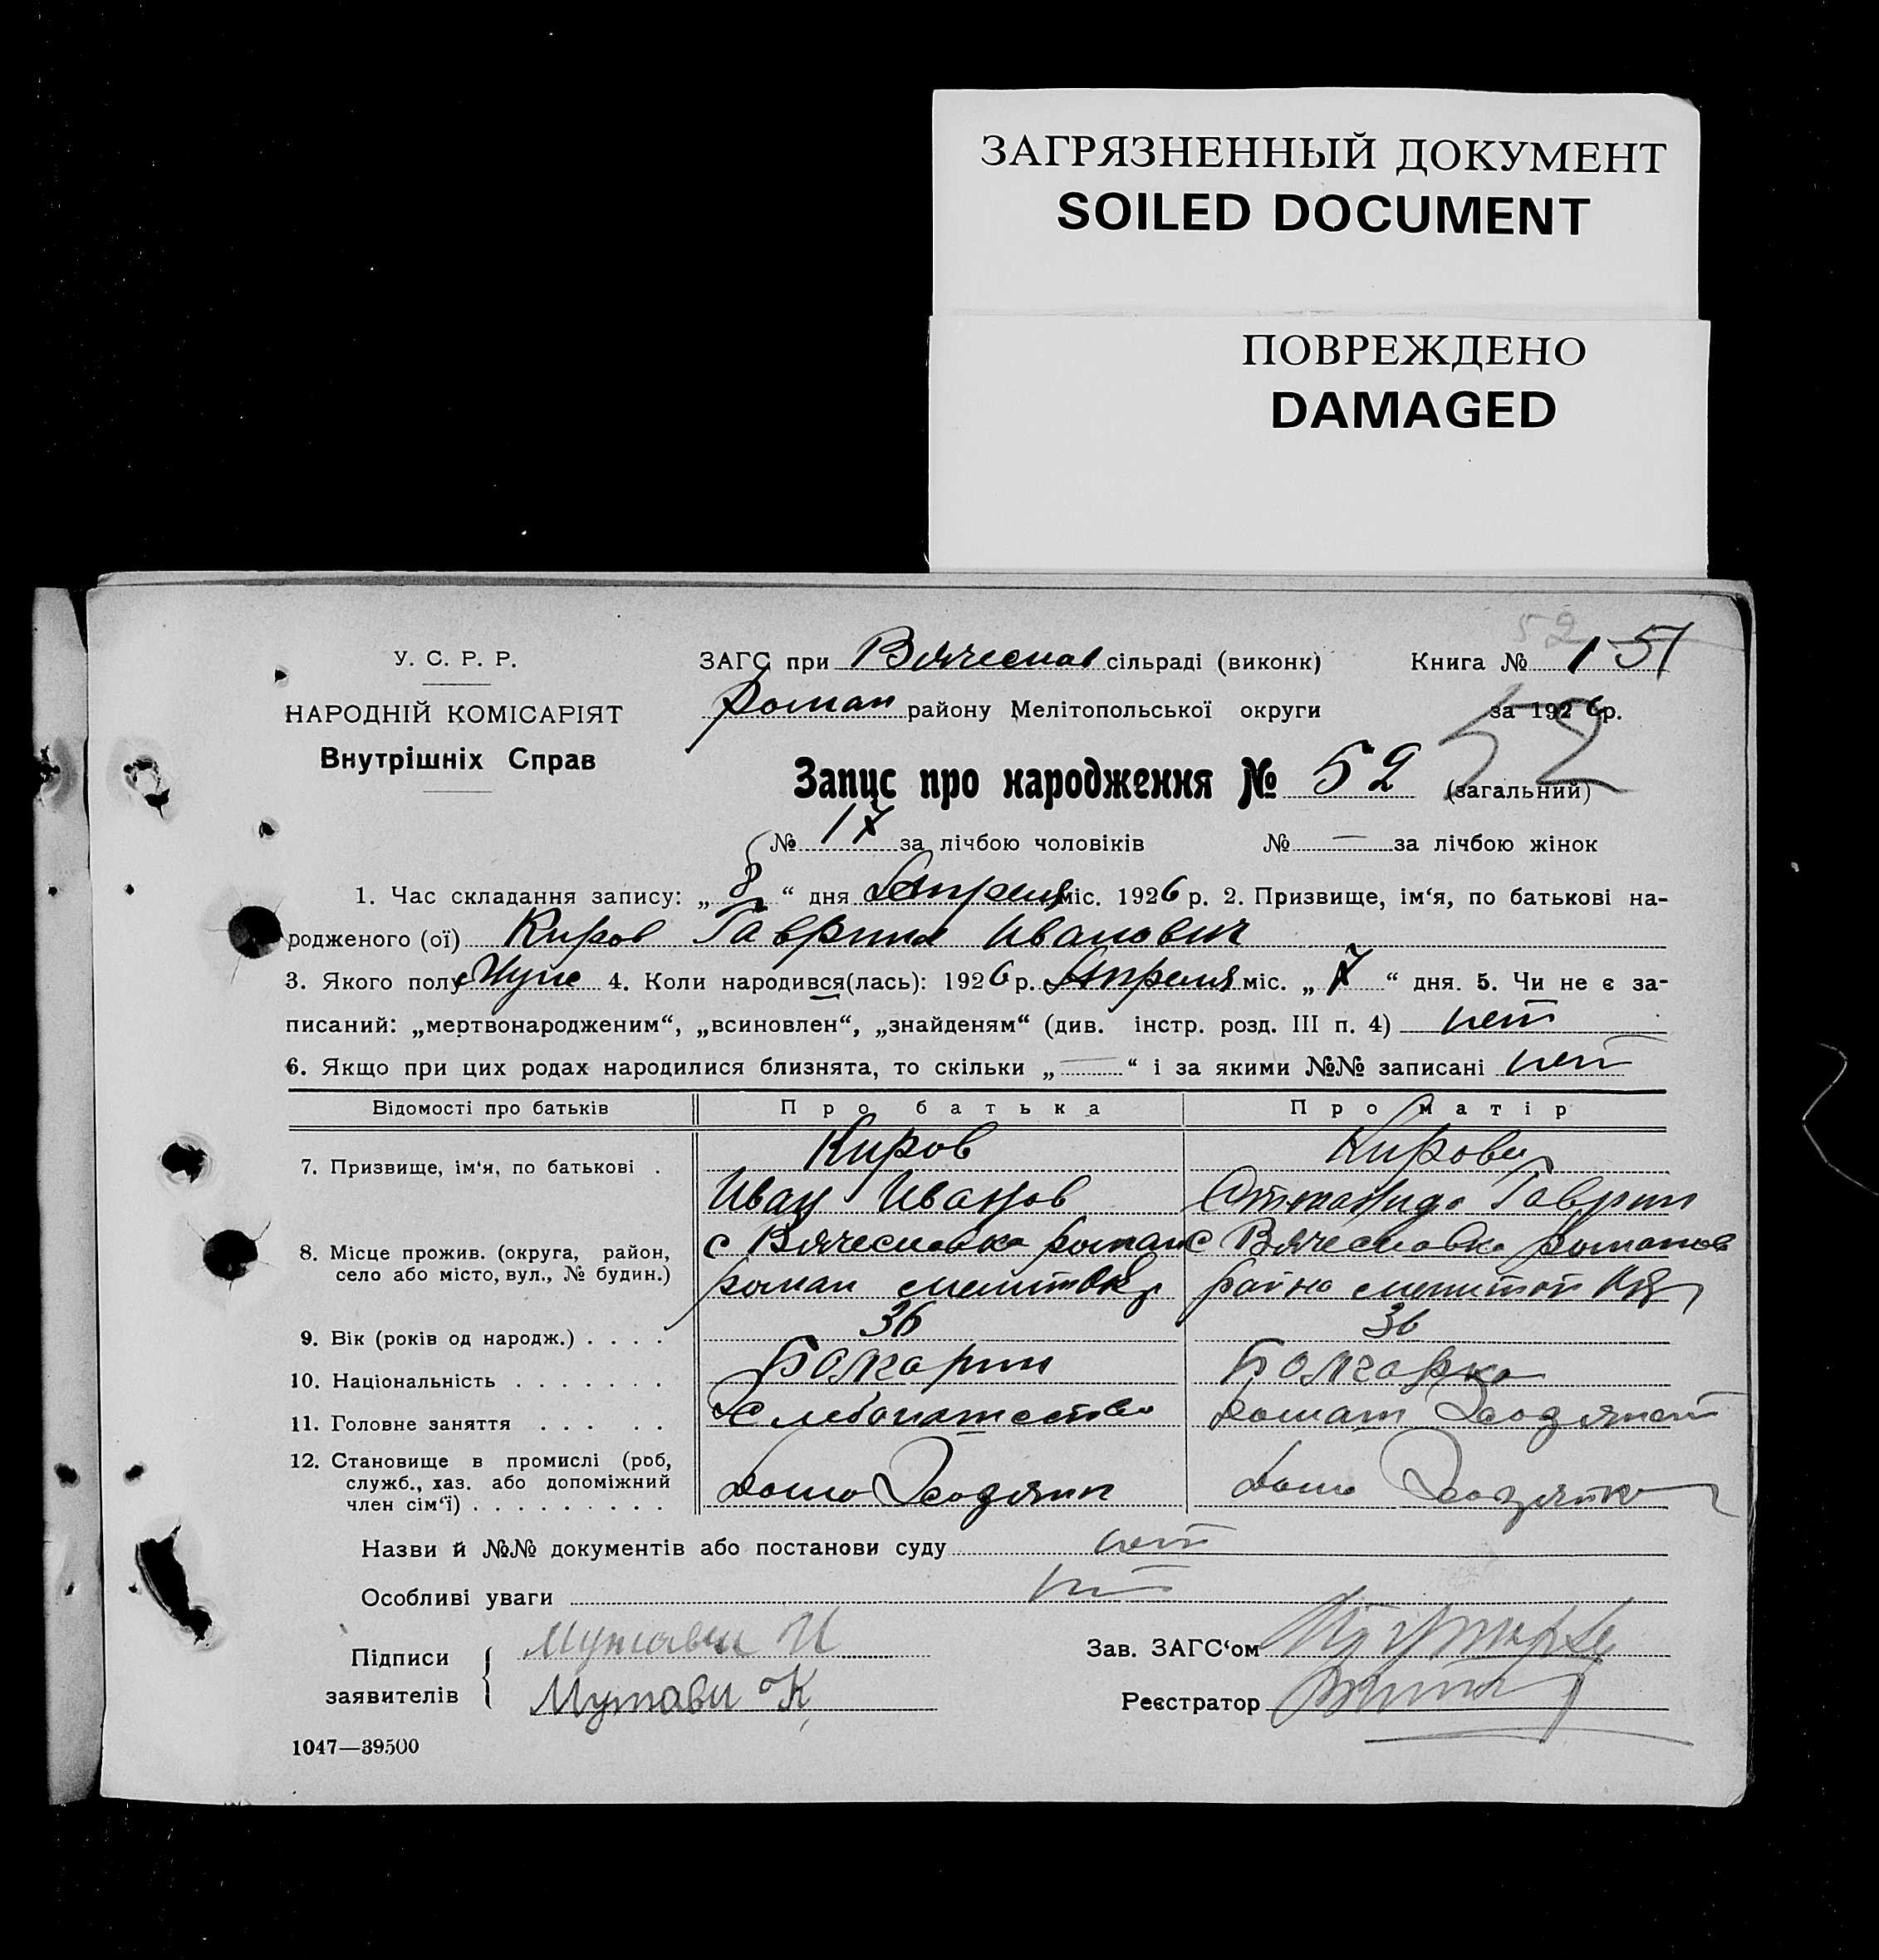 ЗАГРЯЗНЕННЫЙ ДОКУМЕНТ
SOILED DOCUMENT
ПОВРЕЖДЕНО
DAMAGED
52
У. С. Р. Р.
НАРОДНІЙ КОМІСАРІЯТ
Внутрішніх Справ
ЗАГС при Вячеслав сільраді (виконк) Книга № 1 51
роман району Мелітопольської округи за 1926 р.
52
Запис про народження № 52 (загальний)
№ 17 за лічбою чоловіків № — за лічбою жінок
1. Час складання запису: „8“ дня Апреля міс. 1926 р. 2. Призвище, ім‘я, по батькові на-
родженого (ої) Киров Гаврил Иванович
3. Якого полу Муж 4. Коли народився(лась): 1926 р. Апреля міс. „7“ дня. 5. Чи не є за-
писаний: „мертвонародженим“, „всиновлен“, „знайденям“ (див. інстр. розд. III п. 4) нет
6. Якщо при цих родах народилися близнята, то скільки „—“ і за якими №№ записані нет
Відомості про батьків Про батька Про матір
7. Призвище, ім‘я, по батькові . Киров Кирова
Иван Иванов Гаврил
8. Місце прожив. (округа, район, с Вячеславка роман с Вячеславка романов
село або місто, вул., № будин.) роман мелит окр райно мелитоп окр
9. Вік (років од народж.) . . . . 36 36
10. Національність . . . . . . . Болгарин Болгарка
11. Головне заняття . . . . . Хлебопашество Домаш Хозяйст
12. Становище в промислі (роб,
служб., хаз. або допоміжний
член сім‘ї) . . . . . . . . . Домо Хозяин Домо Хозяйка
Назви й №№ документів або постанови суду нет
Особливі уваги нет
Підписи
заявителів
Мутавчи И
Мутавчи К
Зав. ЗАГС‘ом
Реєстратор
1047—39500